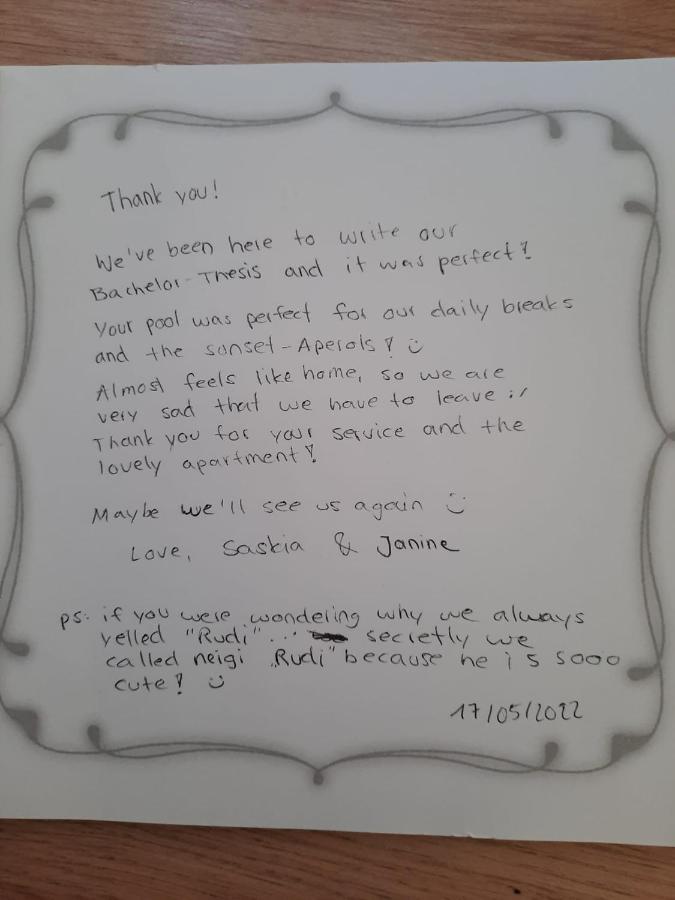 Thank you!
We've been here to write our
Bachelor-Thesis and it was perfect!
Your pool was perfect for our daily breaks
and the sunset-Aperols! :)
Almost feels like home, so we are
very sad that we have to leave :/
Thank you for your service and the
lovely apartment!
Maybe we'll see us again :)
Love, Saskia & Janine
ps: if you were wondering why we always
yelled "Rudi"...  secretly we
called neigi „Rudi" because he is sooo
cute! :)
17/05/2022